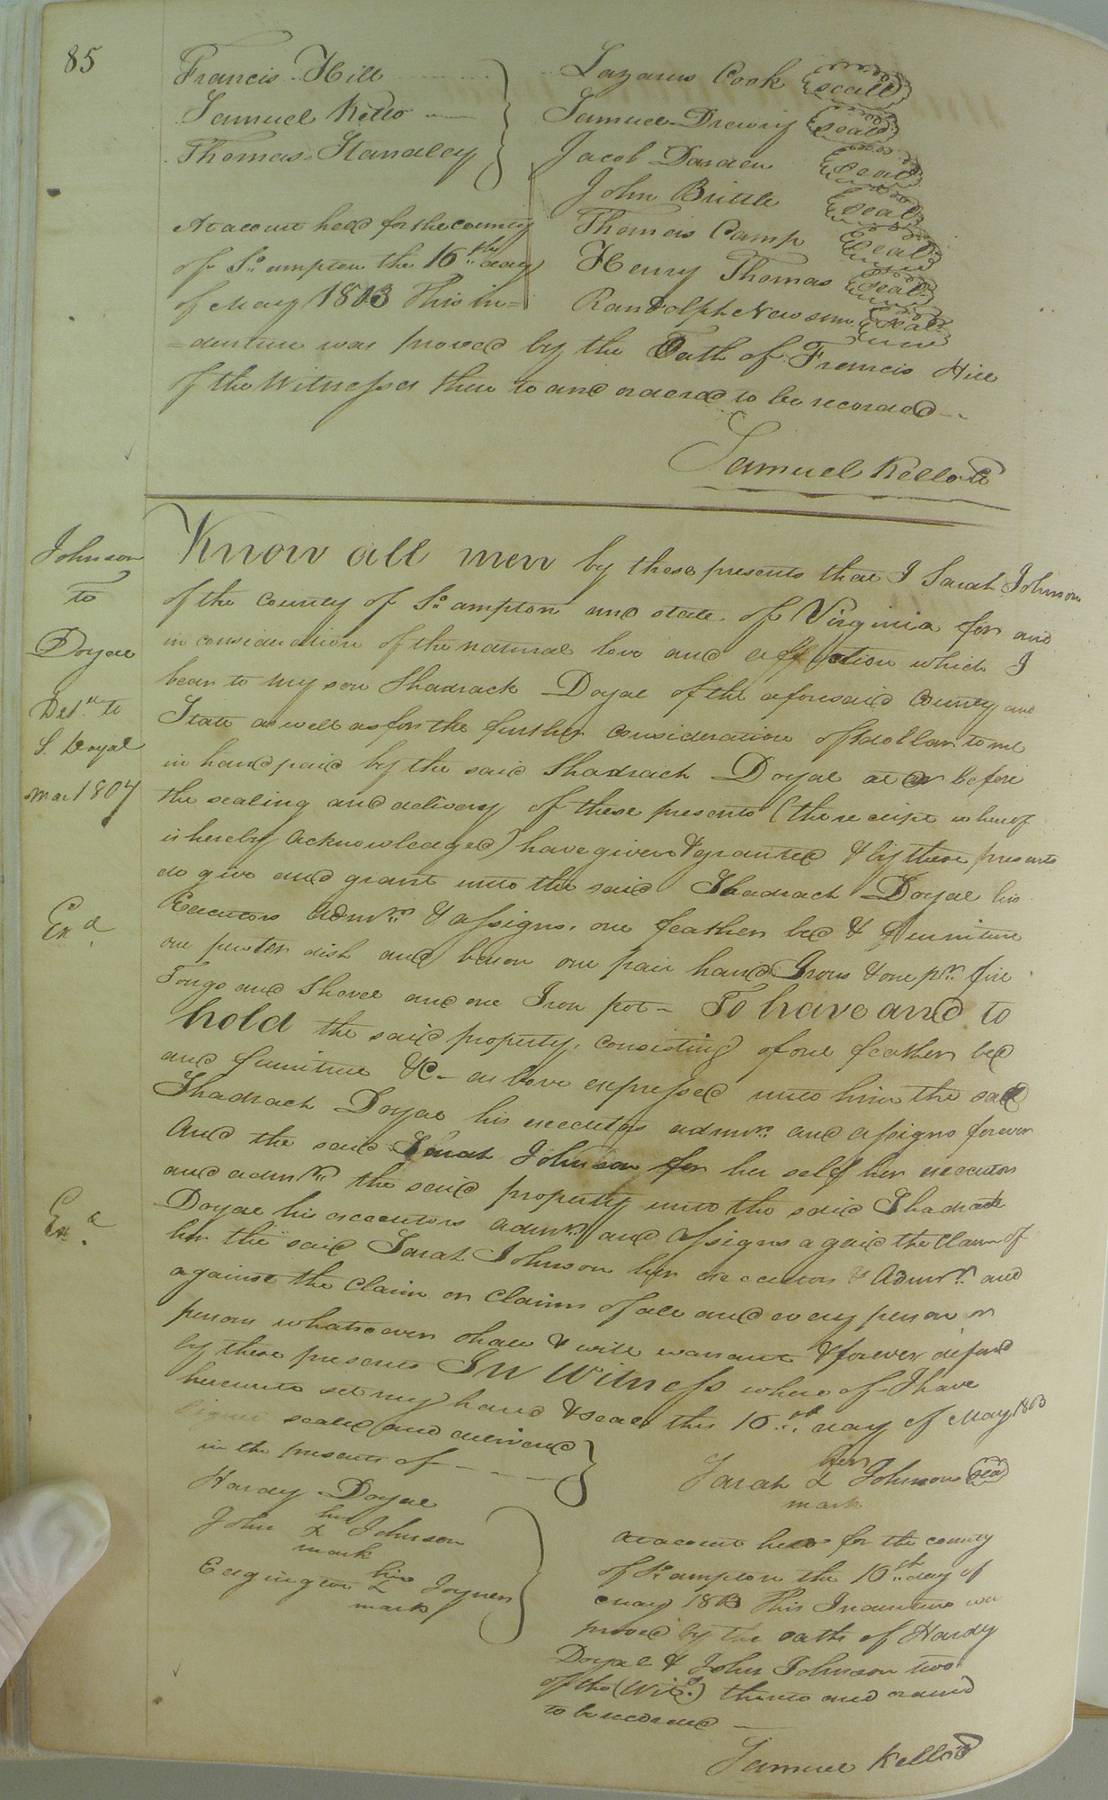 85
Francis Hill
Samuel Kello
Thomas Standley
Lazarus Cook seall
Samuel Drewry seal
Jacob Darden seal
John Brittle seal
Thomas Camp seal
Henry Thomas seal
Randolph Newsom seal
At a court held for the county
of So. ampton the 16th day
of May 1803 This in=
=denture was proved by the Oath of Francis Hill
of the Witnesses there to and ordered to be recorded
Samuel Kello
Johnson
to
Doyal
Del.d to
S. Doyal
mar 1807
Ex.d
Ex.d
Know all men by these presents that I Sarah Johnson
of the County of So. ampton and state of Virginia for and
in consideration of the natural love and affection which I
bear to my son Shadrack Doyal of the aforesaid County and
State as well as for the further consideration of 1 dollar to me
in hand paid by the said Shadrach Doyal at or before
the sealing and delivery of these presents (the receipt whereof
is hereby acknowledged) have given & granted & by these presents
do give and grant unto the said Shadrach Doyal his
Executors Admrs. & assigns, one feather bed & furniture
one pewter dish and bason one pair hand Irons & one pr. fire
Tongs and Shovel and one Iron pot - To have and to
hold the said property, consisting of one feather bed
and furniture &C - as above expressed unto him the said
Shadrach Doyal his executors admrs. and assigns forever
And the said Sarah Johnson for her self her executors
and admrs. the said property unto the said Shadrach
Doyal his executors admrs. and assigns again the Claim of
her the said Sarah Johnson her executors & Admrs. and
against the Claim or Claims of all and every person or
persons whatsoever shall & will warrant & forever defend
by these presents In Witness where of I have
hereunto set my hand & seal this 16th day of May 1803
signed sealed and delivered
in the presents of
Hardy Doyal
John his X mark Johnson
Edgington his X mark Joyner
Sarah her X mark Johnson seal
At a court held for the county
of So. ampton the 16th day of
may 1803 This Indenture was
proved by the oaths of Hardy
Doyal & John Johnson two
of the (Wits.) thereto and ordered
to be recorded
Samuel Kello